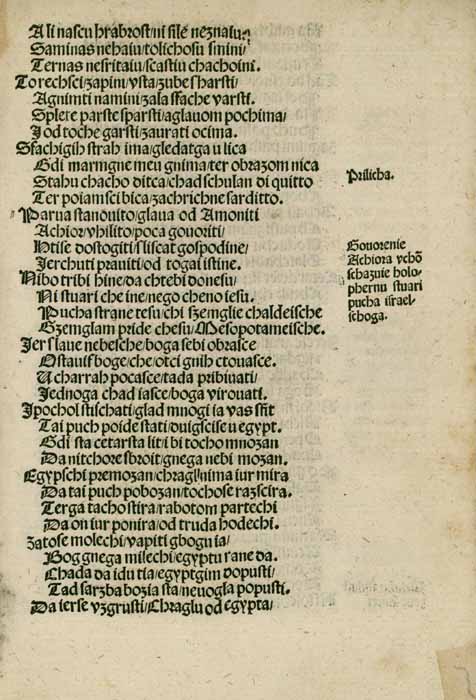 A li nascu hrabrost/ni silé neznaiu/
Saminas nehaiu/tolichosu smini/
Ternas nesritaiu/scastiu chachoini.
To rechsci/zapini/vsta/zube sharsti/
Agnimti namini/zala sfache varsti.
Splete parste sparsti/aglauom pochima/
J od toche garsti/zaurati ocima.
Sfachigih strah ima/gledatga u lica
Gdi marmgne meu gnima/ter obrazom nica
Stahu chacho ditca/chad schulan di quitto
Ter poiamsci bica/zachrichne sarditto.
Prilicha.
Parua stanouito/glaua od Amoniti
Achior/vhilito/poca gouoriti/
Htise dostogiti/sliscat gospodine/
Jerchuti prauiti/od togai istine.
Gouorenie
Achiora ychõ
schazuie holo-
phernu stuari
pucha israel-
schoga.
Nibo tribi hine/da chtebi donesu/
Ni stuari che ine/nego cheno iesu.
Pucha strane tesu/chi szemglie chaldeische
Gzemglam pride chesu/Mesopotameische.
Jer slaue nebesche/boga sebi obrasce
Ostauif boge/che/otci gnih ctouasce.
U charrah pocasce/tada pribiuati/
Jednoga chad iasce/boga virouati.
Jpochol stischati/glad mnogi ia vas sfit
Tai puch poide stati/duigscise u egypt.
Gdi sta cetarsta lit/i bi tocho mnozan
Da nitchore sbroit/gnega nebi mozan.
Egypschi premozan/chragl nima iur mira
Da tai puch pobozan/tochose razscira.
Terga tacho stira/rabotom partechi
Da on iur ponira/od truda hodechi.
Zatose molechi/vapiti gbogu ia/
Bog gnega milechi/egyptu rane da.
Chada da idu tia/egyptgim dopusti/
Tad sarzba bozia sta/neuogla popusti.
Da ierse vzgrusti/Chraglu od egypta/